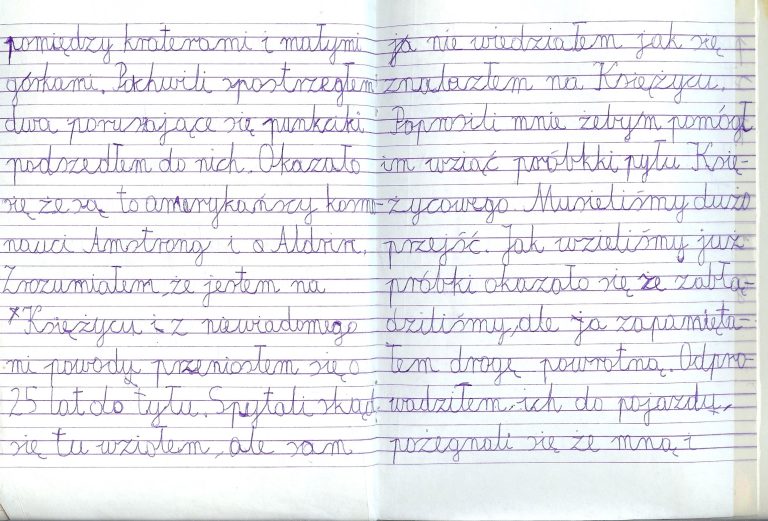 pomiędzy kraterami i małymi
górkami. Pochwili spostrzegłem
dwa poruszające się punkciki
podszedłem do nich. Okazało
się że są to amerykańscy kosmo-
nauci Amstrong i Aldrin.
Zrozumiałem, że jestem na
Księżycu i z niewiadomego
mi powody przeniosłem się o
25 lat do tyłu. Spytali skąd
się tu wziołem, ale sam
ja nie wiedziałem jak się
znalazłem na Księżycu.
Poprosili mnie żebym pomógł
im wziąć próbkki pyłu Księ-
życowego. Musieliśmy dużo
przejść. Jak wzieliśmy już
próbki okazało się że zabłą-
dziliśmy, ale ja zapamięta-
łem drogę powrotną. Odpro-
wadziłem ich do pojazdu,
pożegnali się że mną i